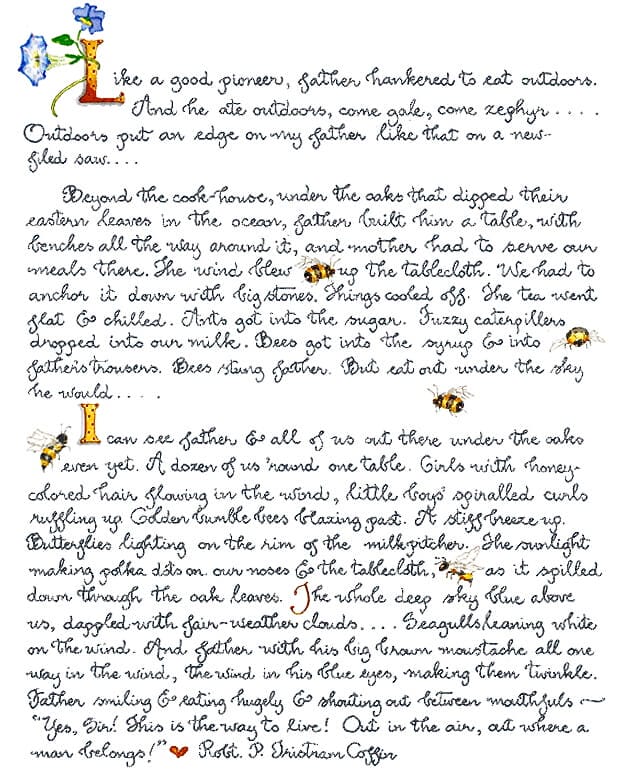 Like a good pioneer, father hankered to eat outdoors.
And he ate outdoors, come gale, come zephyr . . . .
Outdoors put an edge on my father like that on a new-
filed saw. . . .
Beyond the cook-house, under the oaks that dipped their
eastern leaves in the ocean, father built him a table, with
benches all the way around it, and mother had to serve our
meals there. The wind blew up the tablecloth. We had to
anchor it down with big stones. Things cooled off. The tea went
flat & chilled. Ants got into the sugar. Fuzzy caterpillers
dropped into our milk. Bees got into the syrup & into
father's trousers. Bees stung father. But eat out under the sky
he would . . . .
I can see father & all of us out there under the oaks
even yet. A dozen of us 'round one table. Girls with honey-
colored hair flowing in the wind, little boys' spiralled curls
ruffling up. Golden bumble bees blazing past. A stiff breeze up.
Butterflies lighting on the rim of the milkpitcher. The sunlight
making polka dots on our noses & the tablecloth, as it spilled
down through the oak leaves. The whole deep sky blue above
us, dappled with fair-weather clouds. . . . Seagulls leaning white
on the wind. And father with his big brown moustache all one
way in the wind, the wind in his blue eyes, making them twinkle.
Father smiling & eating hugely & shouting out between mouthfuls —
"Yes, Sir! This is the way to live! Out in the air, out where a
man belongs!" ♥ Robt. P. Tristram Coffin